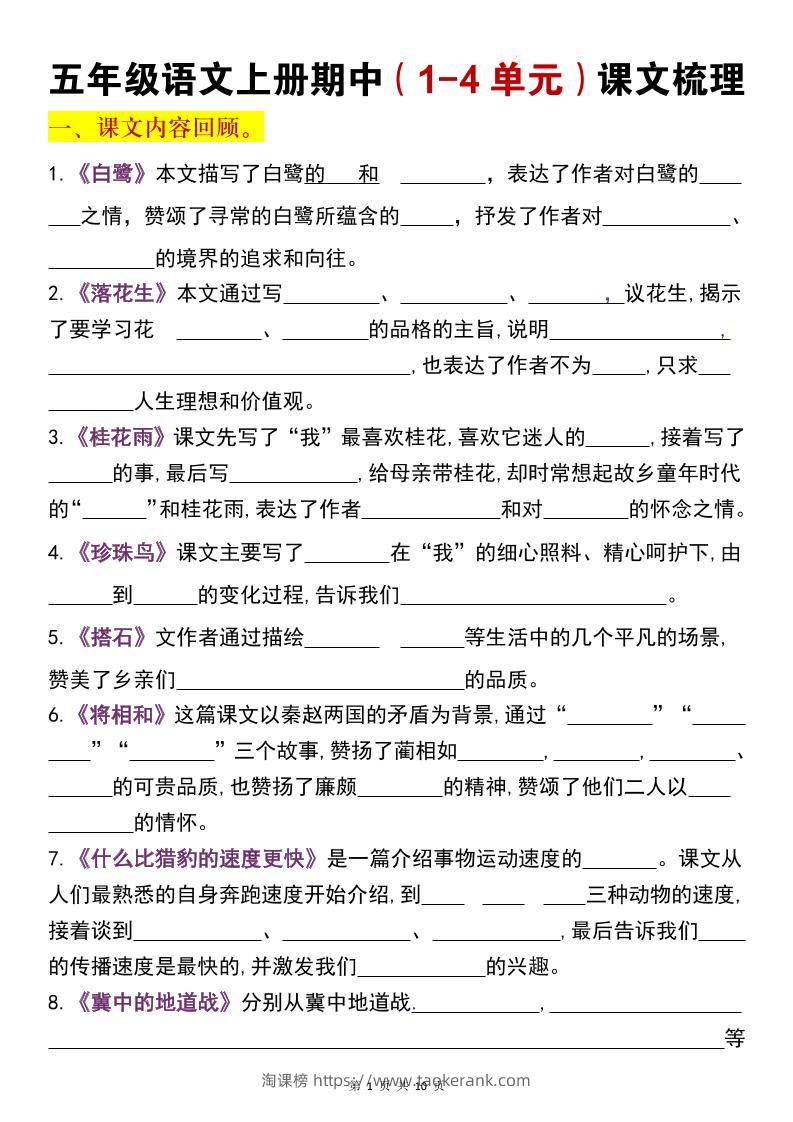 五年级语文上册期中（1-4 单元）课文梳理
一、课文内容回顾。
1.《白鹭》本文描写了白鹭的___和 ________，表达了作者对白鹭的____
___之情，赞颂了寻常的白鹭所蕴含的_____，抒发了作者对____________、
__________的境界的追求和向往。
2.《落花生》本文通过写_________、__________、_______，_议花生,揭示
了要学习花 ________、________的品格的主旨,说明________________,
__________________________________,也表达了作者不为_____,只求___
________人生理想和价值观。
3.《桂花雨》课文先写了“我”最喜欢桂花,喜欢它迷人的______,接着写了
______的事,最后写____________,给母亲带桂花,却时常想起故乡童年时代
的“______”和桂花雨,表达了作者_____________和对________的怀念之情。
4.《珍珠鸟》课文主要写了________在“我”的细心照料、精心呵护下,由
______到______的变化过程,告诉我们_________________________。
5.《搭石》文作者通过描绘_______ ______等生活中的几个平凡的场景,
赞美了乡亲们___________________________的品质。
6.《将相和》这篇课文以秦赵两国的矛盾为背景,通过“________”“_____
____”“________”三个故事,赞扬了蔺相如________,________,________、
______的可贵品质,也赞扬了廉颇________的精神,赞颂了他们二人以____
________的情怀。
7.《什么比猎豹的速度更快》是一篇介绍事物运动速度的_______。课文从
人们最熟悉的自身奔跑速度开始介绍,到____ ____ ____三种动物的速度,
接着谈到____________、____________、____________,最后告诉我们____
的传播速度是最快的,并激发我们____________的兴趣。
8.《冀中的地道战》分别从冀中地道战.____________,__________________
________________________________________________________________等
淘课榜 https://www.taokerank.com
第 1 页 共 10 页